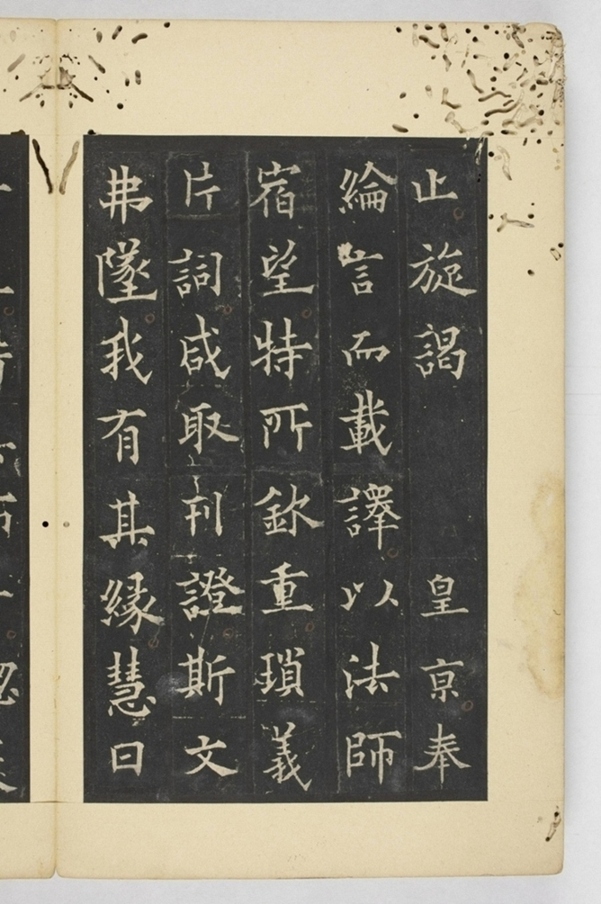 止旋謁　皇亰奉
綸言而載譯以法師
宿望特所欽重瑣義
片詞咸取刊證斯文
弗墜我有其縁慧日